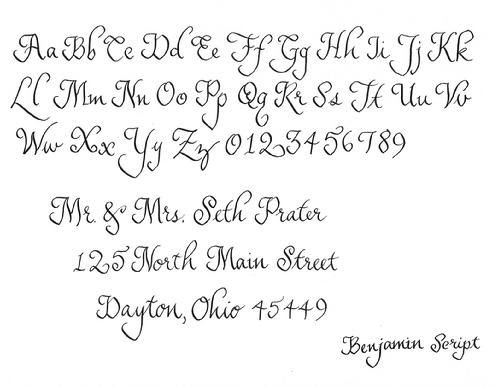 Aa Bb Cc Dd Ee Ff Gg Hh Ii Jj Kk
Ll Mm Nn Oo Pp Qq Rr Ss Tt Uu Vv
Ww Xx Yy Zz 0123456789
Mr. & Mrs. Seth Prater
125 North Main Street
Dayton, Ohio 45449
Benjamin Script